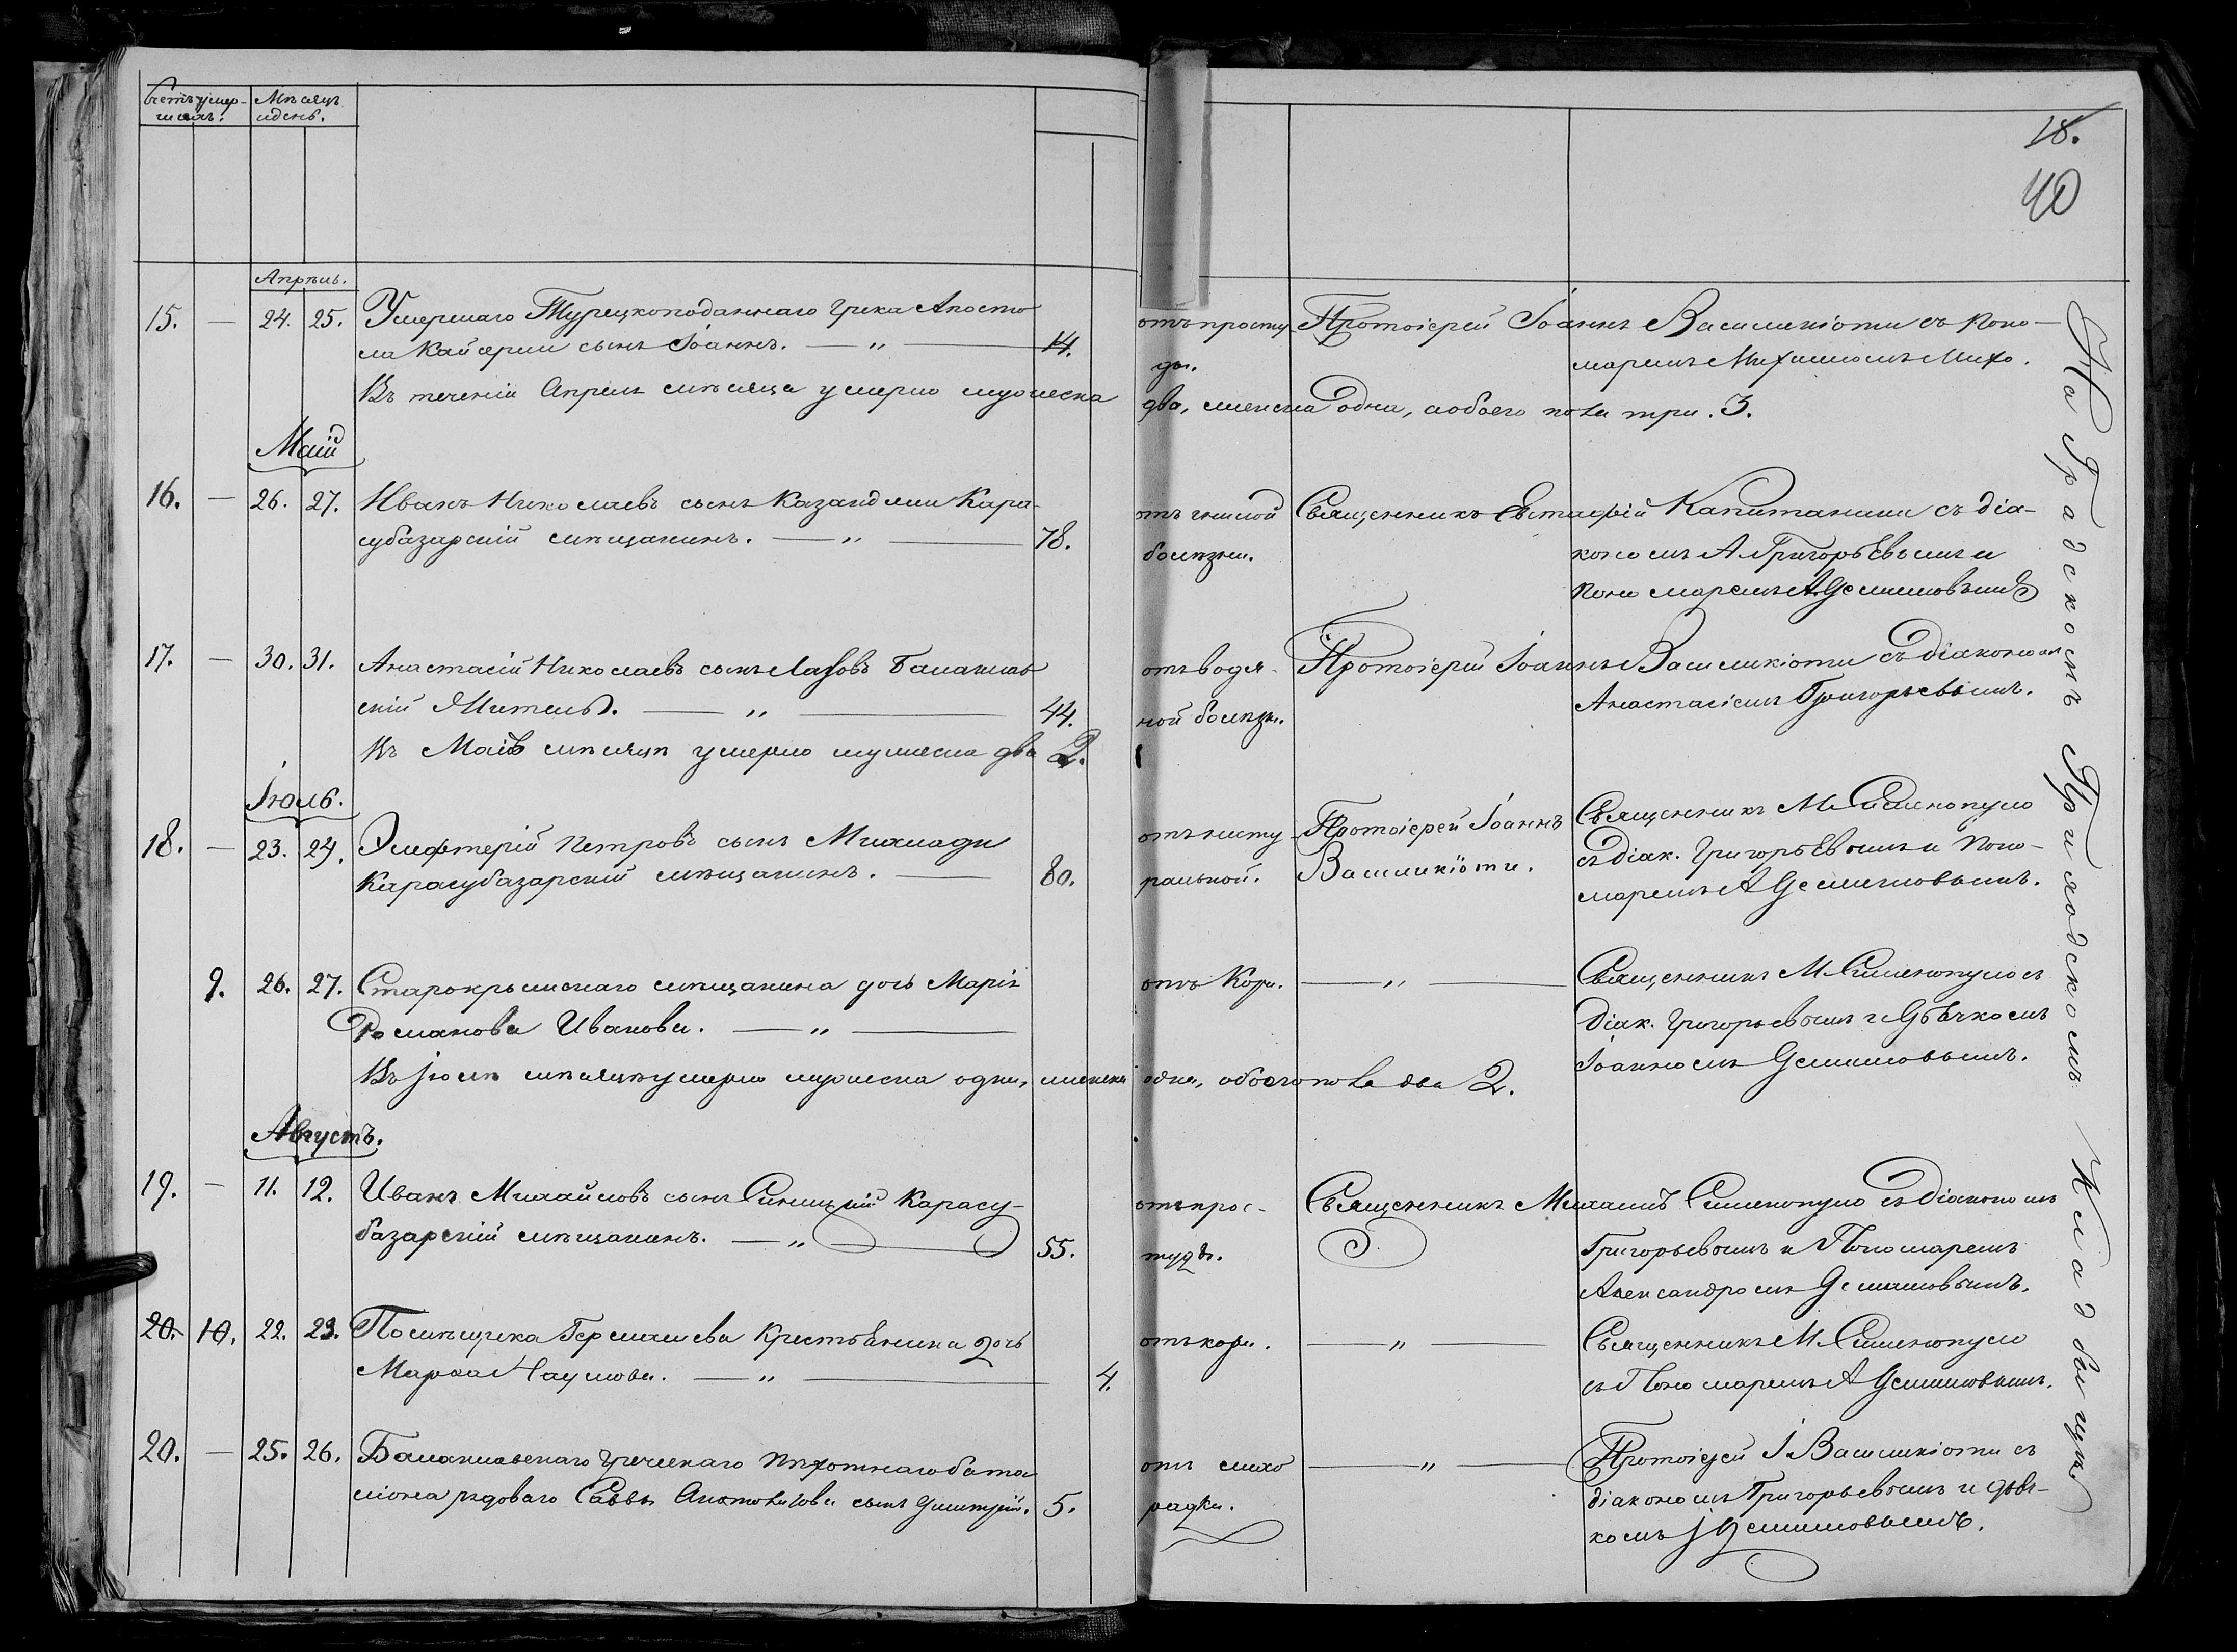 Счетъ умер-
шихъ.
Мѣсяцъ
и день.
18.
40
Апрѣль.
15. — 24. 25. Умершаго Турецкоподаннаго Грека Апосто
ла Кайсерли сынъ Іоаннъ. — „ — 14.
отъ просту
ды.
Протоіерей Іоаннъ Василикіоти съ Поно-
маремъ Михаиломъ
Въ теченіи Апреля мѣсяца умерло мужеска два, женска одна, а обоего пола три. 3.
Маій
16. — 26. 27. Иванъ Николаевъ сынъ Казанджи Кара-
субазарскій мѣщанинъ. — „ — 78.
отъ гнилой
болѣзни.
Священникъ Евстафій Капитанаки съ діа-
кономъ А. Григорьевымъ и
Пономаремъ А. Демишовымъ
17. — 30. 31. Анастасій Николаевъ сынъ Лазовъ Балаклав
скій Житель. — „ — 44.
отъ водя-
ной болѣзн.
Протоіерей Іоаннъ Василикіоти съ Діакономъ
Анастасіемъ Григорьевымъ.
Въ Маів мѣсяцѣ умерло мужеска два 2.
Іюль.
18. — 23. 24. Элефтерій Петровъ сынъ Михаиади
Карасубазарскій мѣщанинъ. — 80.
отъ нату-
ральной.
Протоіерей Іоаннъ
Василикіоти.
Священникъ М. Сименопуло
съ діак. Григорьевымъ и Поно-
маремъ А Демишовымъ.
9. 26. 27. Старокрымскаго мѣщанина дочь Марія
Романова Иванова. — „ —
отъ Кори. — „ —
Священникъ М Сименопуло съ
Діак. Григорьевымъ и Дьячкомъ
Іоанномъ Демишовымъ.
Въ Іюлѣ мѣсяцѣ умерло мужеска одинъ, женска одна, обоего пола два 2.
Августъ.
19. — 11. 12. Иванъ Михайловъ сынъ Синицкій Карасу-
базарскій мѣщанинъ. — „ — 55.
отъ прос-
туды.
Священникъ Михаилъ Сименопуло съ Діакономъ
Григорьевымъ и Пономаремъ
Александромъ Демишовымъ.
20. 10. 22. 23. Помѣщика Крестьянина дочь
Марфа Наумова. — „ — 4.
отъ кори. — „ —
Священникъ М. Сименопуло
съ Пономаремъ А Демишовымъ.
20. — 25. 26. Балаклавскаго Греческаго Пѣхотнаго бата
ліона рядоваго Саввы сынъ Дмитрій. 5.
отъ лихо
радки.
— „ —
Протоіерей І. Василикіоти съ
діакономъ Григорьевымъ и дья-
комъ І Демишовымъ.
На Градскомъ Приходскомъ Кладбищѣ